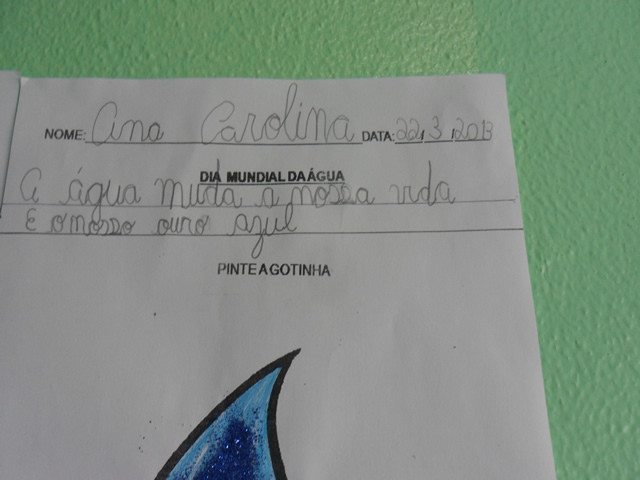 NOME: Ana Carolina DATA: 22/3/2013
DIA MUNDIAL DA ÁGUA
A água muda a nossa vida
E o nosso ouro azul
PINTE A GOTINHA